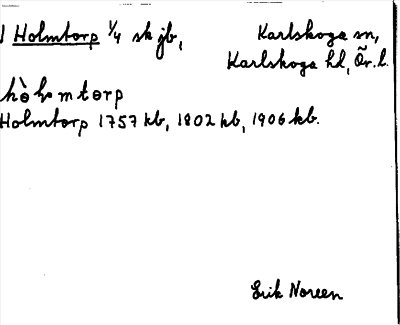 Holmtorp 1/4 sk jb, Karlskoga sn,
Karlskoga hd, Ör. l.
Holmtorp 1757 kb, 1802 kb, 1906 kb.
Erik Noreen